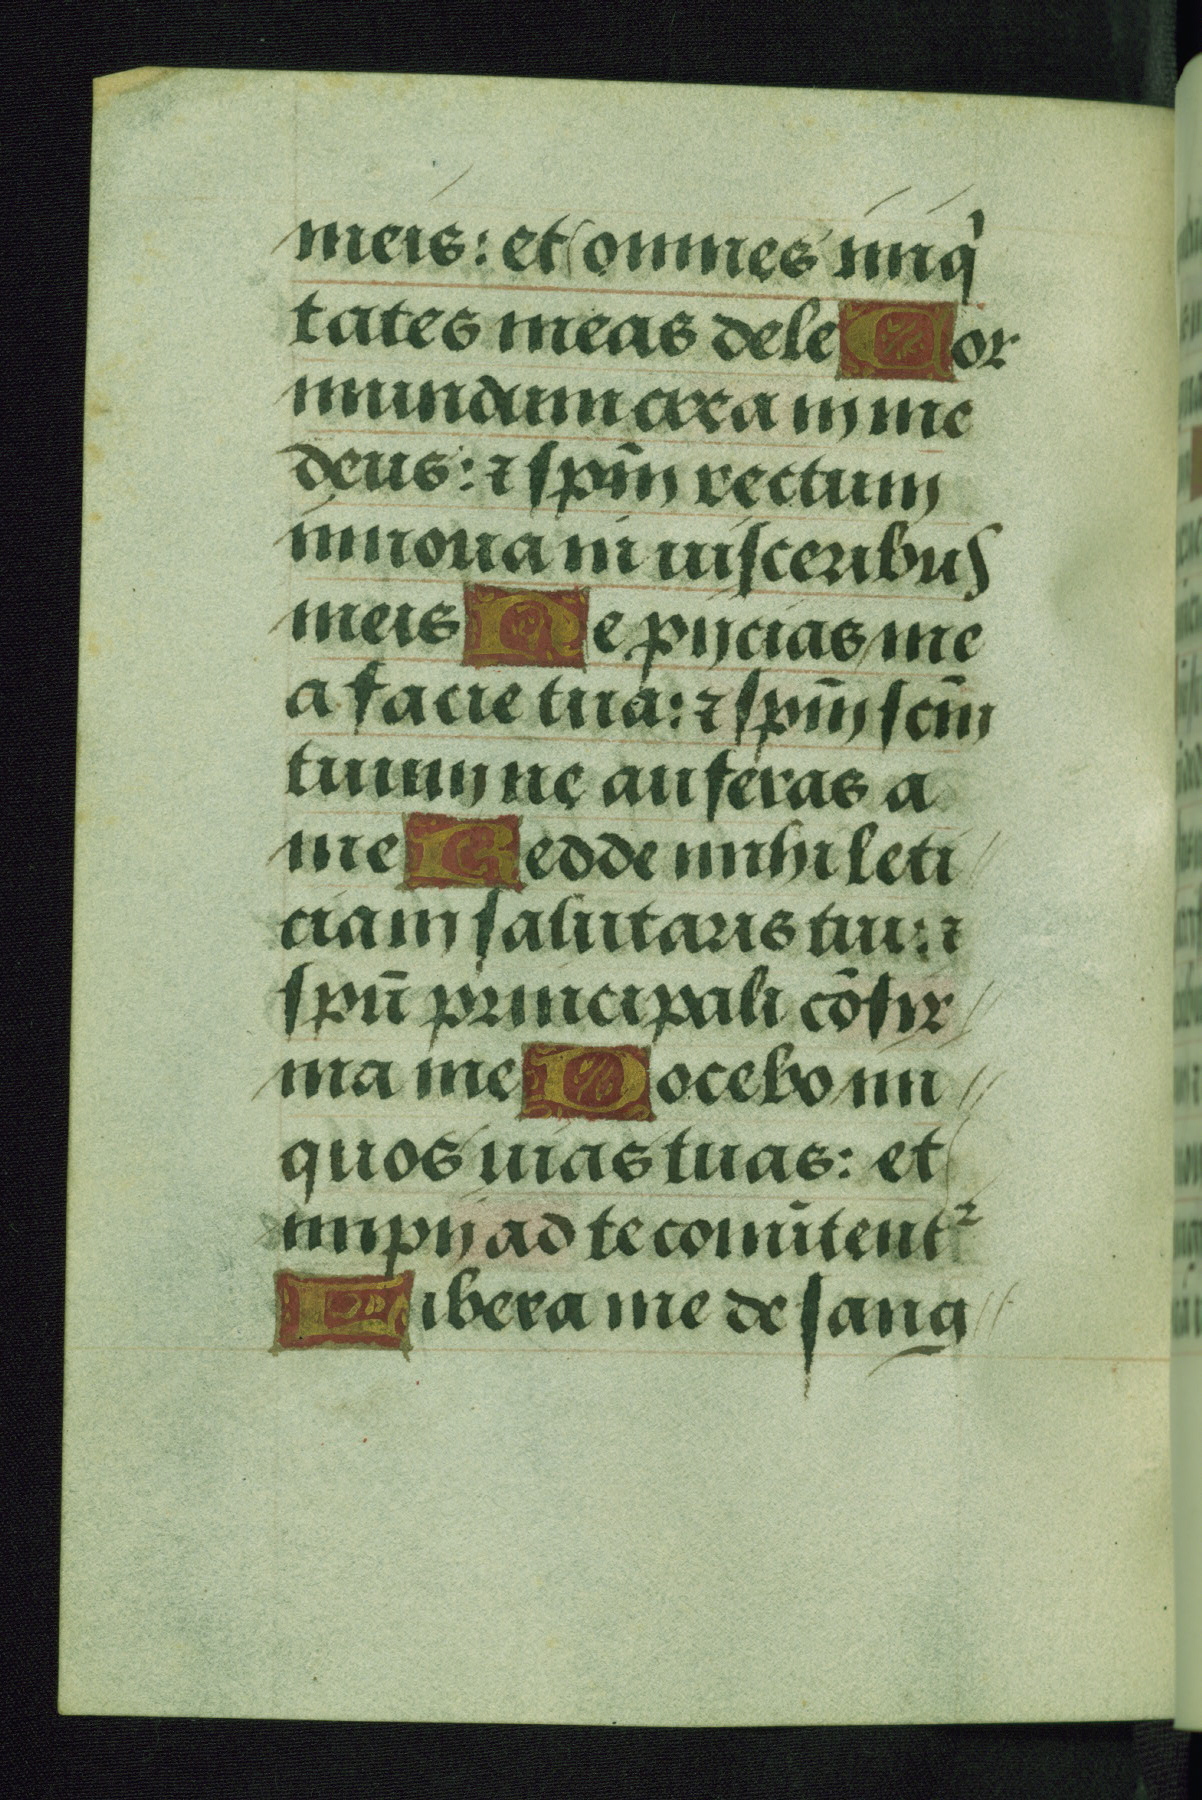 meis: et omnes iniq̇
tates meas dele Cor
mundum crea in me
deus: ⁊ spm̄ rectum
innoua in uisceribus
meis Ne ꝓijcias me
a facie tua: ⁊ spm̄ scm̄
tuum ne auferas a
me Redde mihi leti
ciam salutaris tui: ⁊
spū principali cōfir
ma me Docebo ini
quos uias tuas: et
impij ad te conūtent²
Libera me de sang